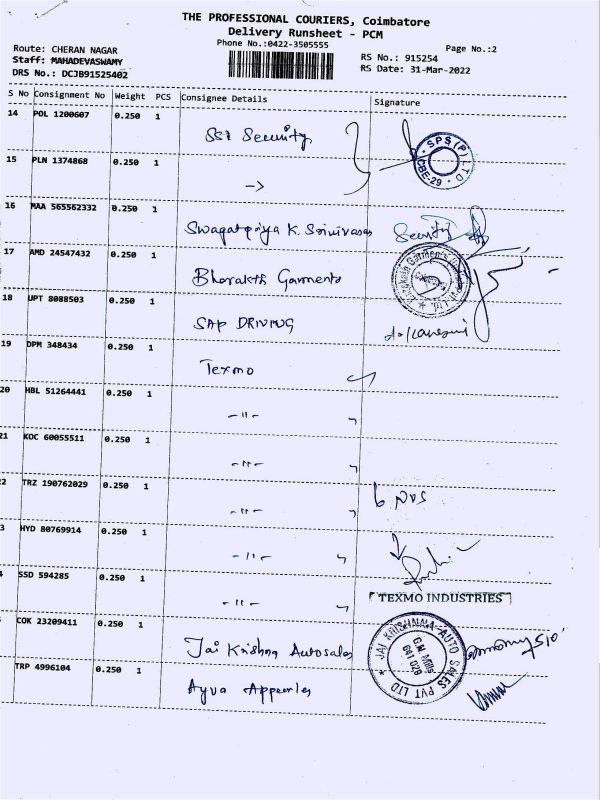 THE PROFESSIONAL COURIERS, Coimbatore
Delivery Runsheet - PCM
Phone No.:0422-3505555
Page No.:2
Route: CHERAN NAGAR
RS No.: 915254
Staff: MAHADEVASWAMY
RS Date: 31-Mar-2022
DRS No.: DCJB91525402
S No Consignment No Weight PCS Consignee Details Signature
14 POL 1200607 0.250 1 SSI Security
SPS (P) LTD CBE-29
15 PLN 1374868 0.250 1 ->
16 MAA 565562332 0.250 1 Swagatpriya K. Srinivasan Security
17 AMD 24547432 0.250 1 Bharakth Garments
18 UPT 8088503 0.250 1 SAP DRIVING
19 DPM 348434 0.250 1 Texmo
20 HBL 51264441 0.250 1 -11-
21 KOC 60055511 0.250 1 -11-
2 TRZ 190762029 0.250 1 -11- 6 nos
3 HYD 80769914 0.250 1 -11-
4 SSD 594285 0.250 1 -11-
TEXMO INDUSTRIES
COK 23209411 0.250 1 Jai Krishna Autosales
JAI KRISHNAA AUTO SALES PVT LTD
G.N Mills
641 029
TRP 4996104 0.250 1 Ayva